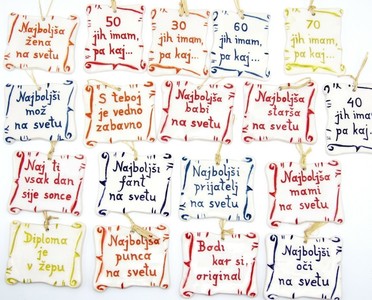 Najboljša
žena
na svetu
50
jih imam,
pa kaj...
30
jih imam,
pa kaj...
60
jih imam,
pa kaj...
70
jih imam,
pa kaj...
Najboljši
mož
na svetu
S teboj
je vedno
zabavno
Najboljša
babi
na svetu
Najboljša
starša
na svetu
40
jih imam,
pa kaj...
Naj ti
vsak dan
sije sonce
Najboljši
fant
na svetu
Najboljši
prijatelj
na svetu
Najboljša
mami
na svetu
Diploma
je
v žepu
Najboljša
punca
na svetu
Bodi
kar si,
original
Najboljši
oči
na svetu